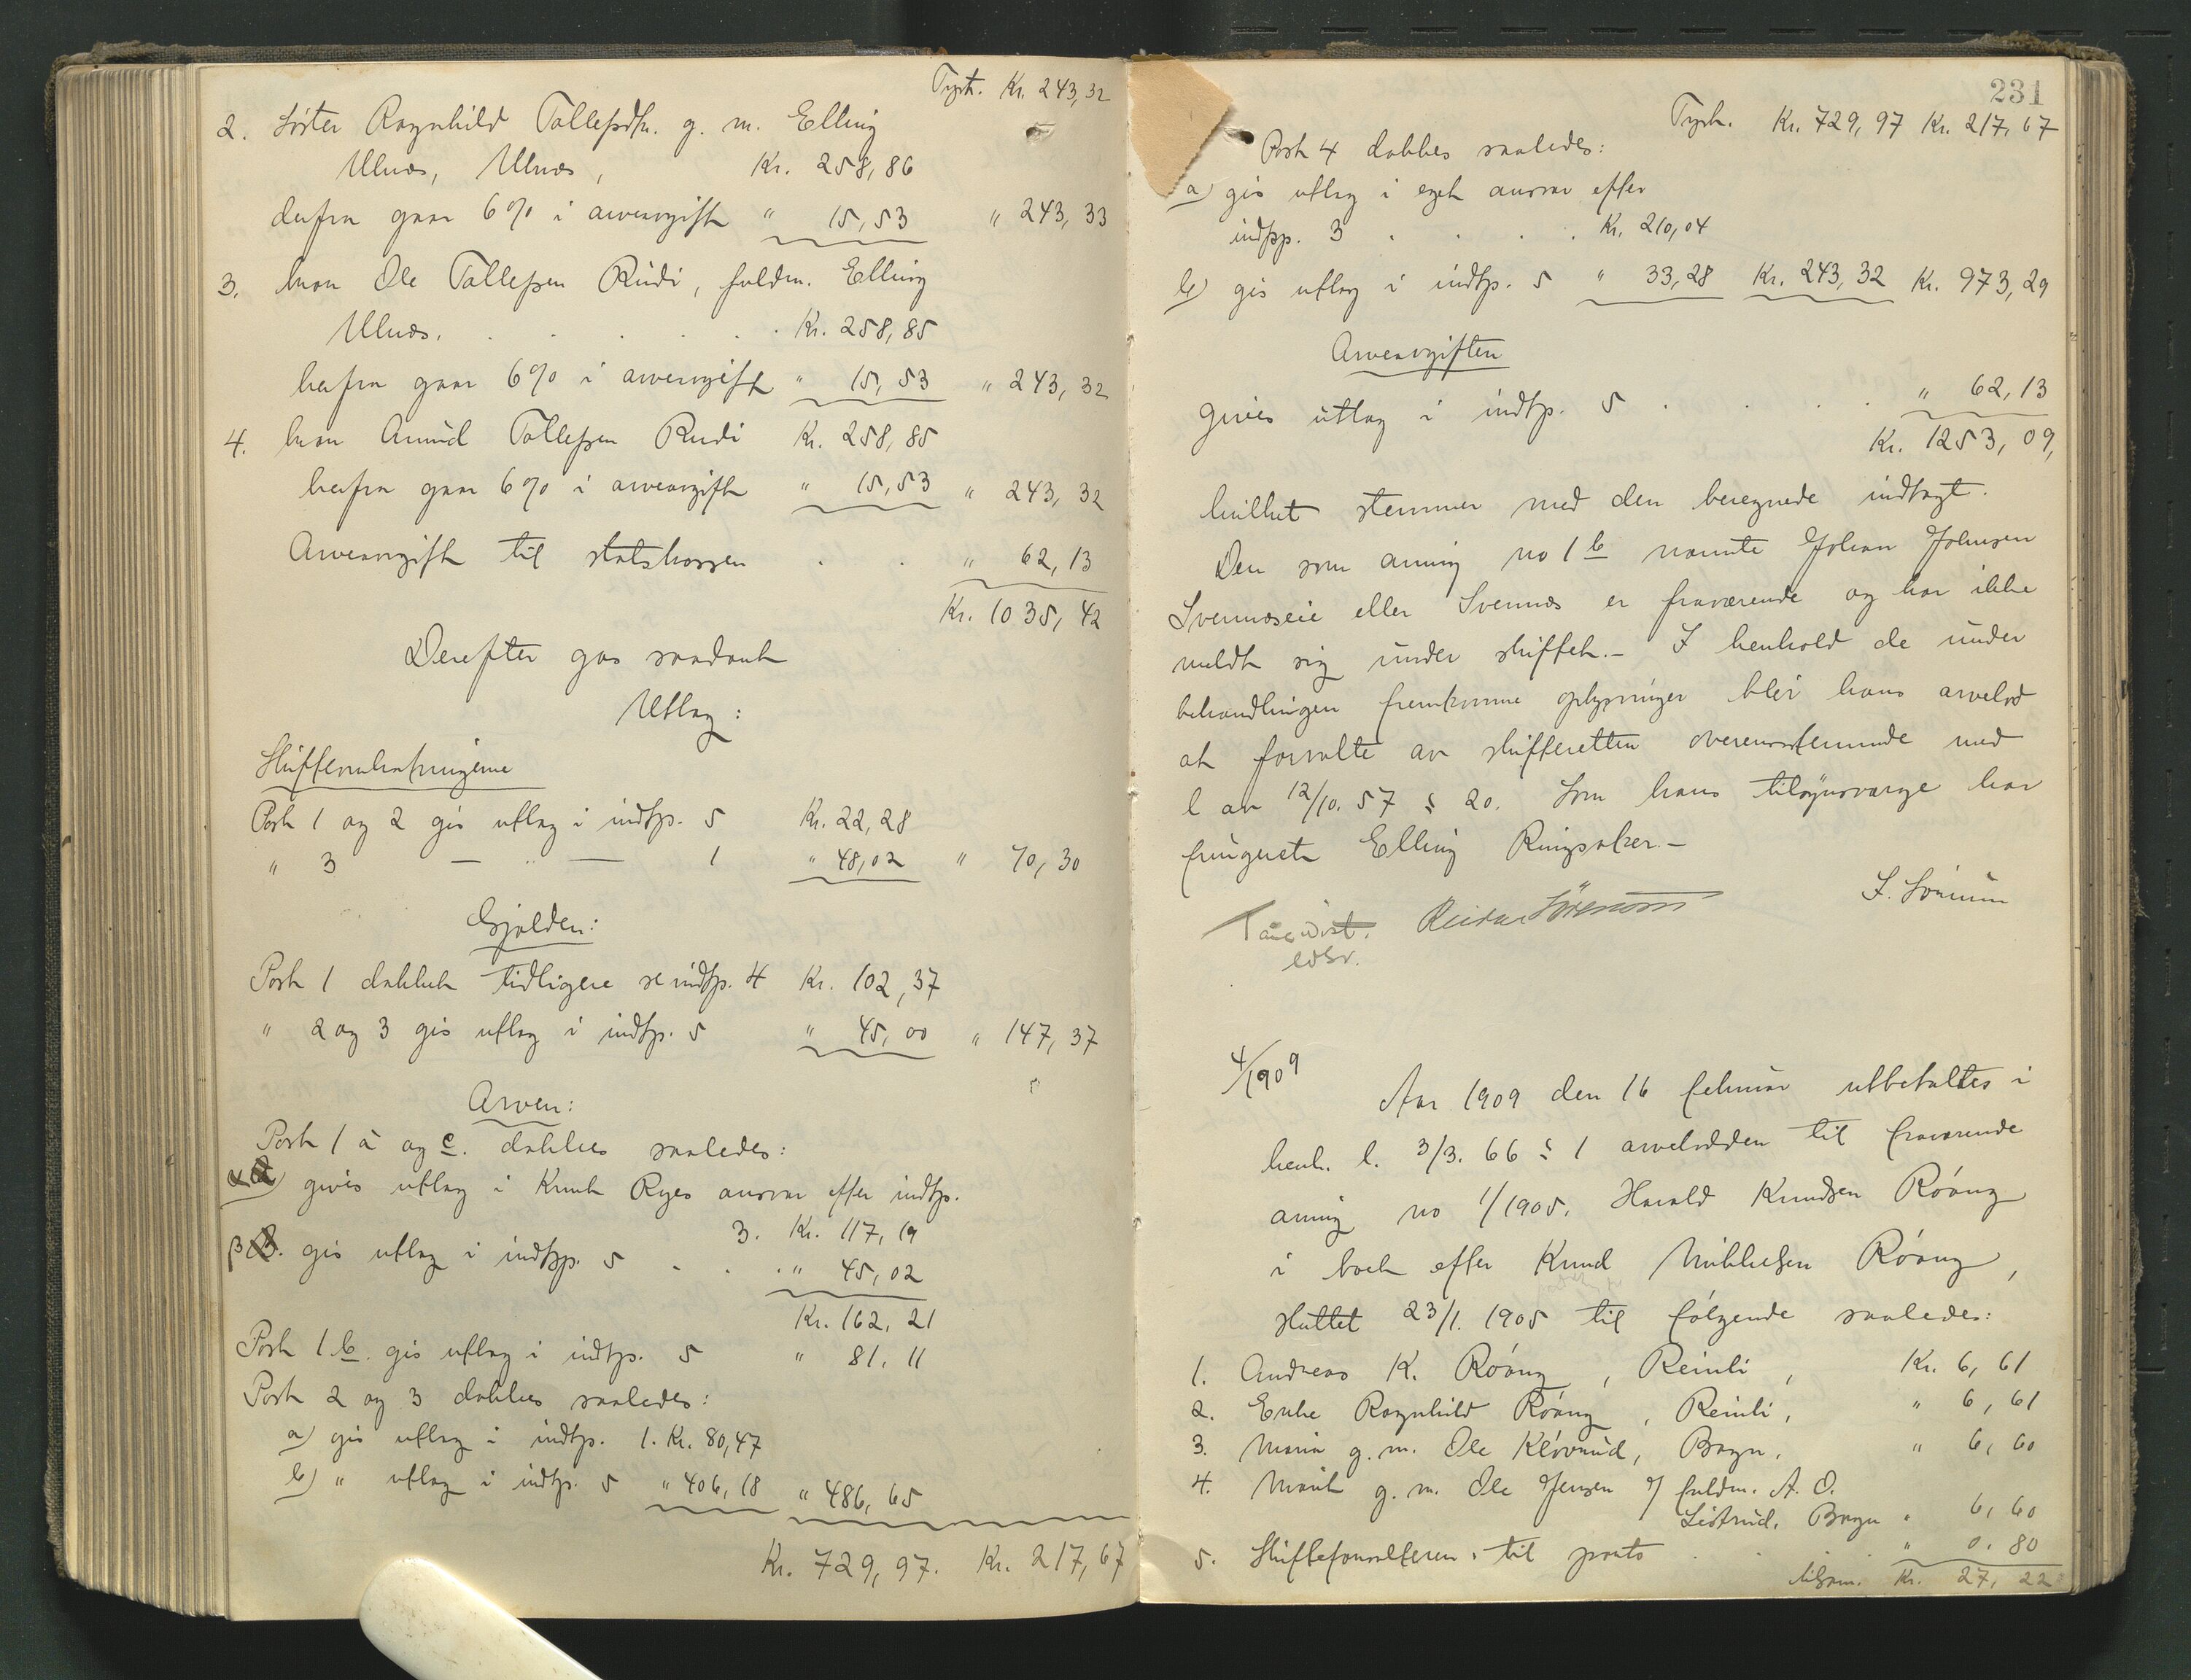 Tpt. Kr. 243,32
2. Søster Ragnhild Tollefsdtr. g. m. Elling
Ulnæs, Ulnæs, Kr. 258,86
derfra gaar 6% i arveavgift " 15,53 " 243,33
3. bror Ole Tollefsen Rudi, fuldm. Elling
Ulnæs. Kr. 258,85
herfra gaar 6% i arveavgift " 15,53 " 243,32
4. bror Amund Tollefsen Rudi Kr. 258,85
herfra gaar 6% i arveavgift " 15,53 " 243,32
Arveavgift til statskassen " 62,13
Kr. 1035,42
Derefter gøs saadant
Utlæg:
Skifteomkostningerne
Post 1 og 2 gis utlæg i indtp. 5 Kr. 22,28
" 3 — " — 1 " 48,02 " 70,30
Gjælden:
Post 1 dækket tidligere se indtp. 4 Kr. 102,37
" 2 og 3 gis utlæg i indtp. 5 " 45,00 " 147,37
Arven:
Post 1 a og c. dækkes saaledes:
α) gives utlæg i Knut Ryes ansvar efter indtp.
3. Kr. 117,19
β. gis utlæg i indtp. 5 . . " 45,02
Kr. 162,21
Post 1 b. gis utlæg i indtp. 5 " 81,11
Post 2 og 3 dækkes saaledes:
a) gis utlæg i indtp. 1. Kr. 80,47
b) " utlæg i indtp. 5 " 406,18 " 486,65
Kr. 729,97. Kr. 217,67
231
Tpt. Kr. 729,97 Kr. 217,67
Post 4 dækkes saaledes:
a) gis utlæg i eget ansvar efter
indtp. 3 . . . . Kr. 210,04
b) gis utlæg i indtp. 5 " 33,28 Kr. 243,32 Kr. 973,29
Arveavgiften
gives utlæg i indtp. 5 . . . . " 62,13
Kr. 1253,09,
hvilket stemmer med den beregnede indtægt.
Den som arving no 1 b nævnte Johan Johnsen
Svennæseie eller Svennæs er fraværende og har ikke
meldt sig under skiftet.— I henhold de under
behandlingen fremkomne oplysninger blir hans arvelod
at forvalte av skifteretten overensstemmende med
l av 12/10. 57 § 20. Som hans tilsynsværge har
fungeret Elling Ringsaker.—
Reidar Sörensen
edsv.
4/1909
Aar 1909 den 16 februar utbetaltes i
henh. l. 3/3. 66 § 1 arvelodden til fraværende
arving no 1/1905. Harald Knudsen Röang
i boet efter Knud Mikkelsen Röang,
sluttet 23/1. 1905 til følgende saaledes:
1. Andreas K. Röang, Reinli, Kr. 6,61
2. Enke Ragnhild Röang, Reinli, " 6,61
3. Maria g. m. Ole Klövrud, Bagn, " 6,60
4. Marit g. m. Ole Jensen v/ fuldm. A. O.
Listrud, Bagn " 6,60
5. Skifteforvalteren, til porto . . . " 0,80
tilsam. Kr. 27,22